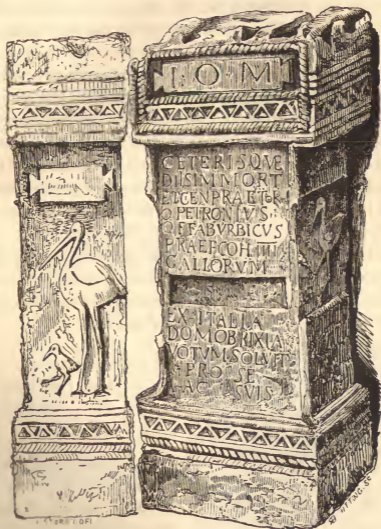 I·O·M
CETERISQVE
DIISIMMORT
ETGENPRAETOR
Q PETRONIVS
Q F FABVRBICVS
PRAEFCOHIIII
GALLORVM
EX ITALIA
DOMOBRIXIA
VOTVMSOLVIT
PRO SE
AC SVIS
UTTING SC